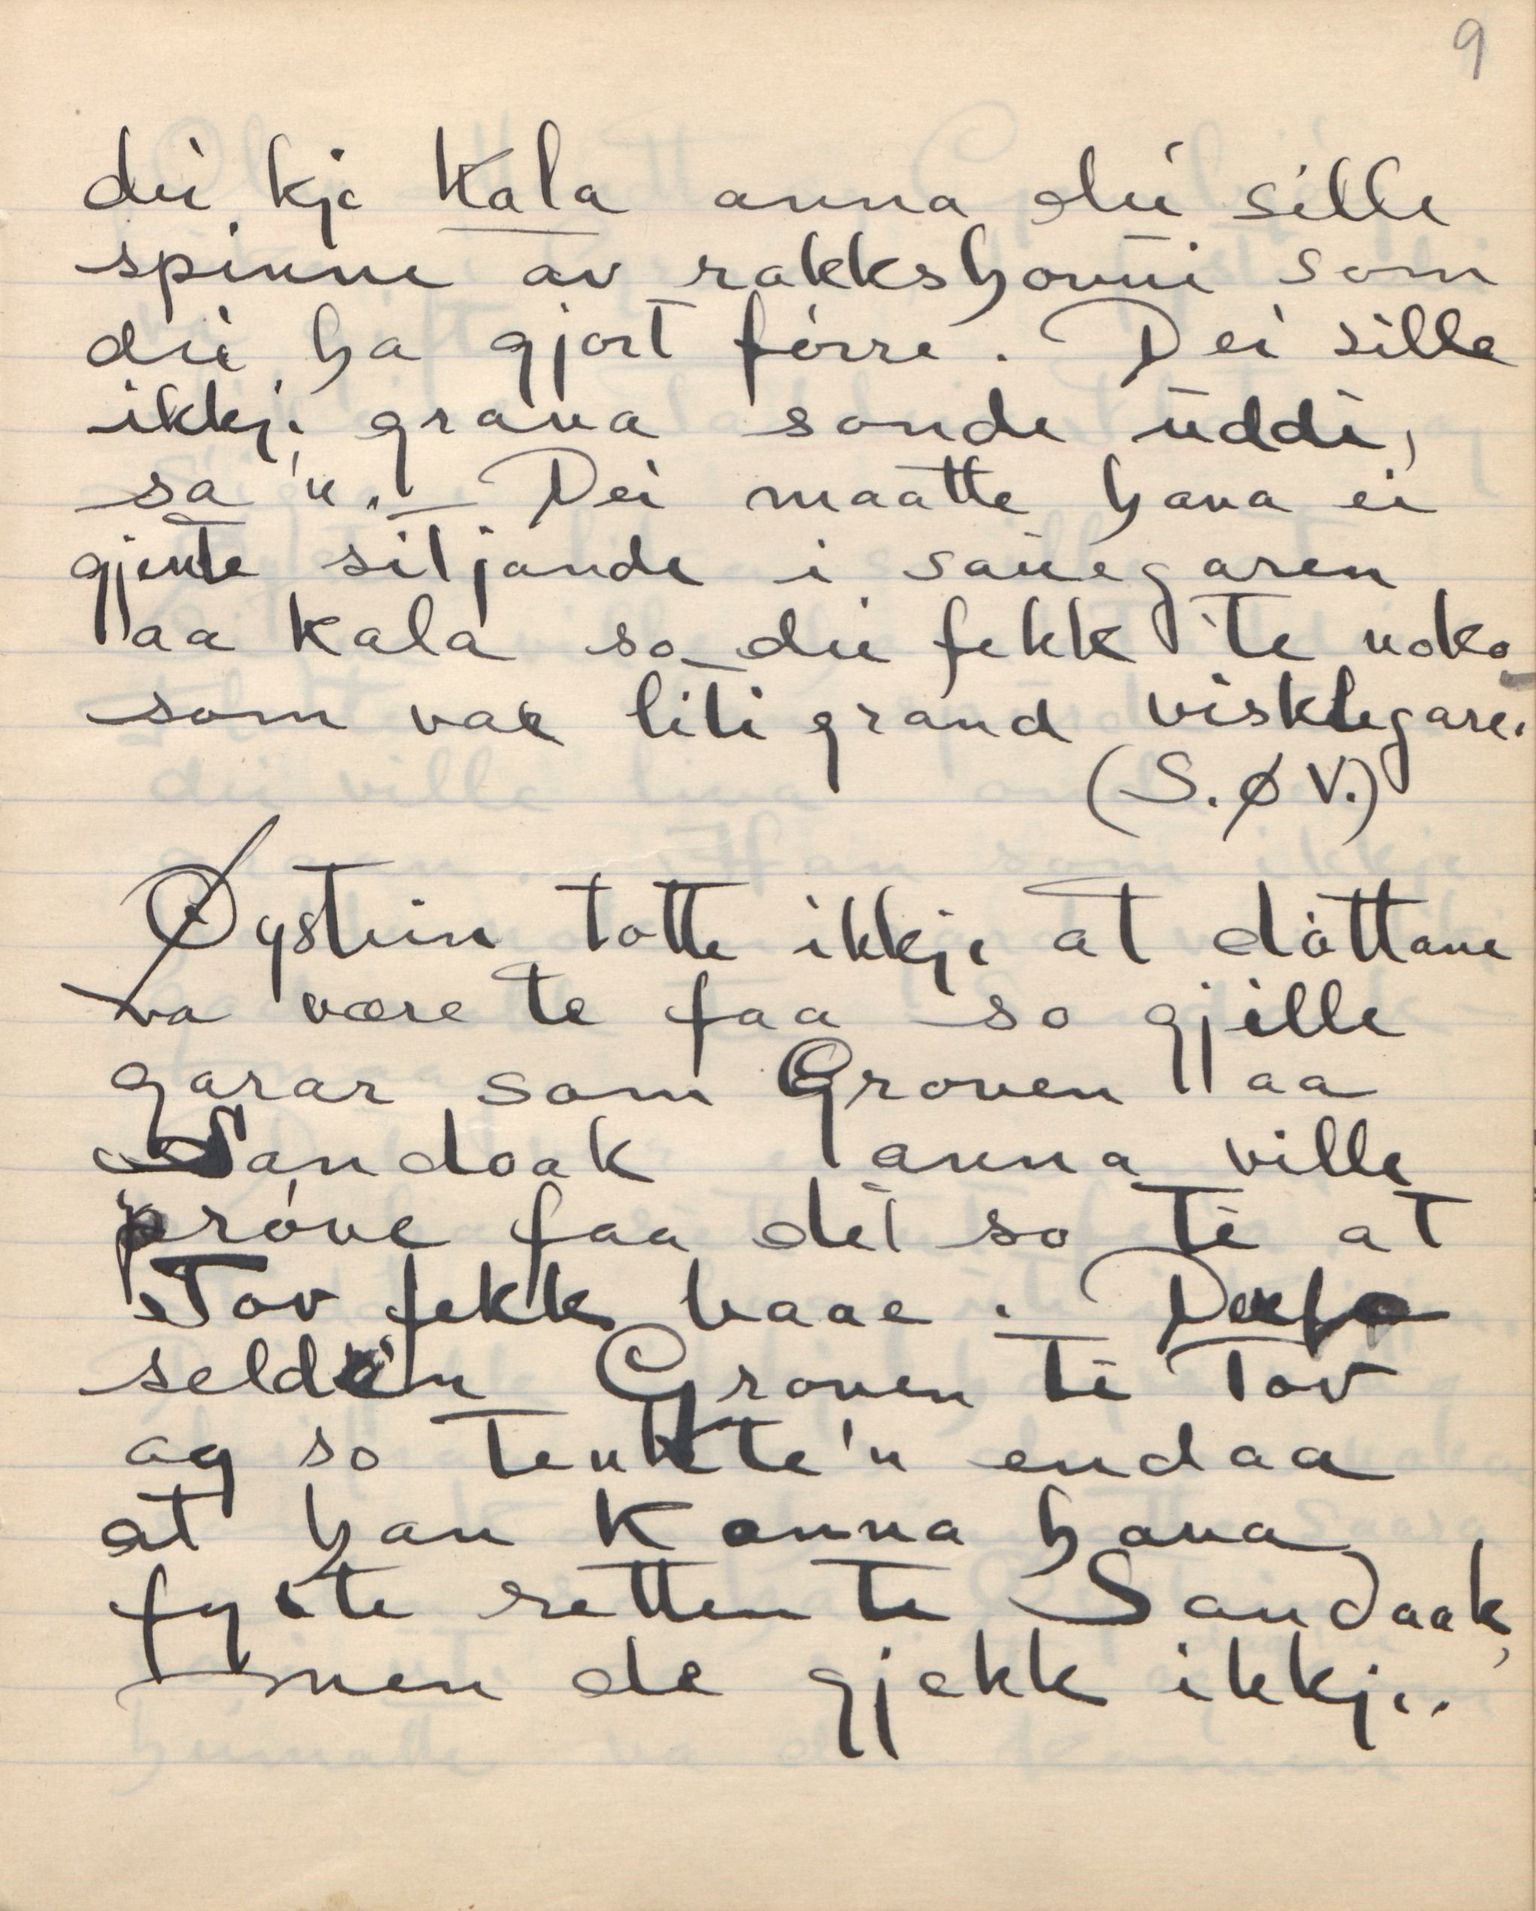 9
dei kje kala anna dei sille
spinne av rakkshonni som
dei ha gjort fórre. Dei sille
ikkje grava sonde uddi,
sa 'n. – Dei maatte hava ei
gjente sitjande i sauegaren
aa kala so dei fekk te noko
som var liti grand visklegare.
(S.ØV.)
Øystein totte ikkje at dóttane
va være te faa so gjille
garar som Groven aa
Sandaak anna ville
próve faa det so te at
Tov fekk baae. – Derfo
selde'n Groven te Tov
ag so tenkte'n endaa
at han konna hava
fyste retten te Sandaak,
men de gjekk ikkje.